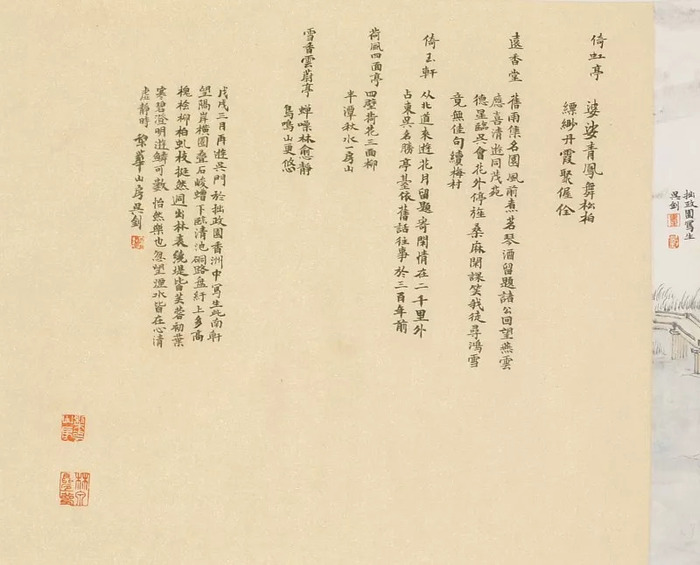 拙政園寫生
吳劍
倚虹亭
婆娑青鳳舞松柏
縹緲丹霞聚偓佺
遠香堂 舊雨集名園風前煮茗琴酒留題諸公回望燕雲
應喜清遊同茂苑
德星臨吳會花外停旌桑麻閑課笑我徒尋鴻雪
竟無佳句續梅村
倚玉軒 从北道來遊花月留題寄閑情在二千里外
占東吳名勝亭臺依舊話往事於三百年前
荷風四面亭 四壁荷花三面柳
半潭秋水一房山
雪香雲蔚亭 蟬噪林愈静
鳥鳴山更悠
戊戌三月再遊吳門於拙政園香洲中寫生此南軒
望隔岸橫圃疊石峻嶒下臨清池磵路盤紆上多高
槐檉柳柏虬枝挺然迥出林表繞堤皆芙蓉初葉
寒碧澄明遊鱗可數怡然樂也忽望煙水皆在心清
虛静時 華山房吳劍